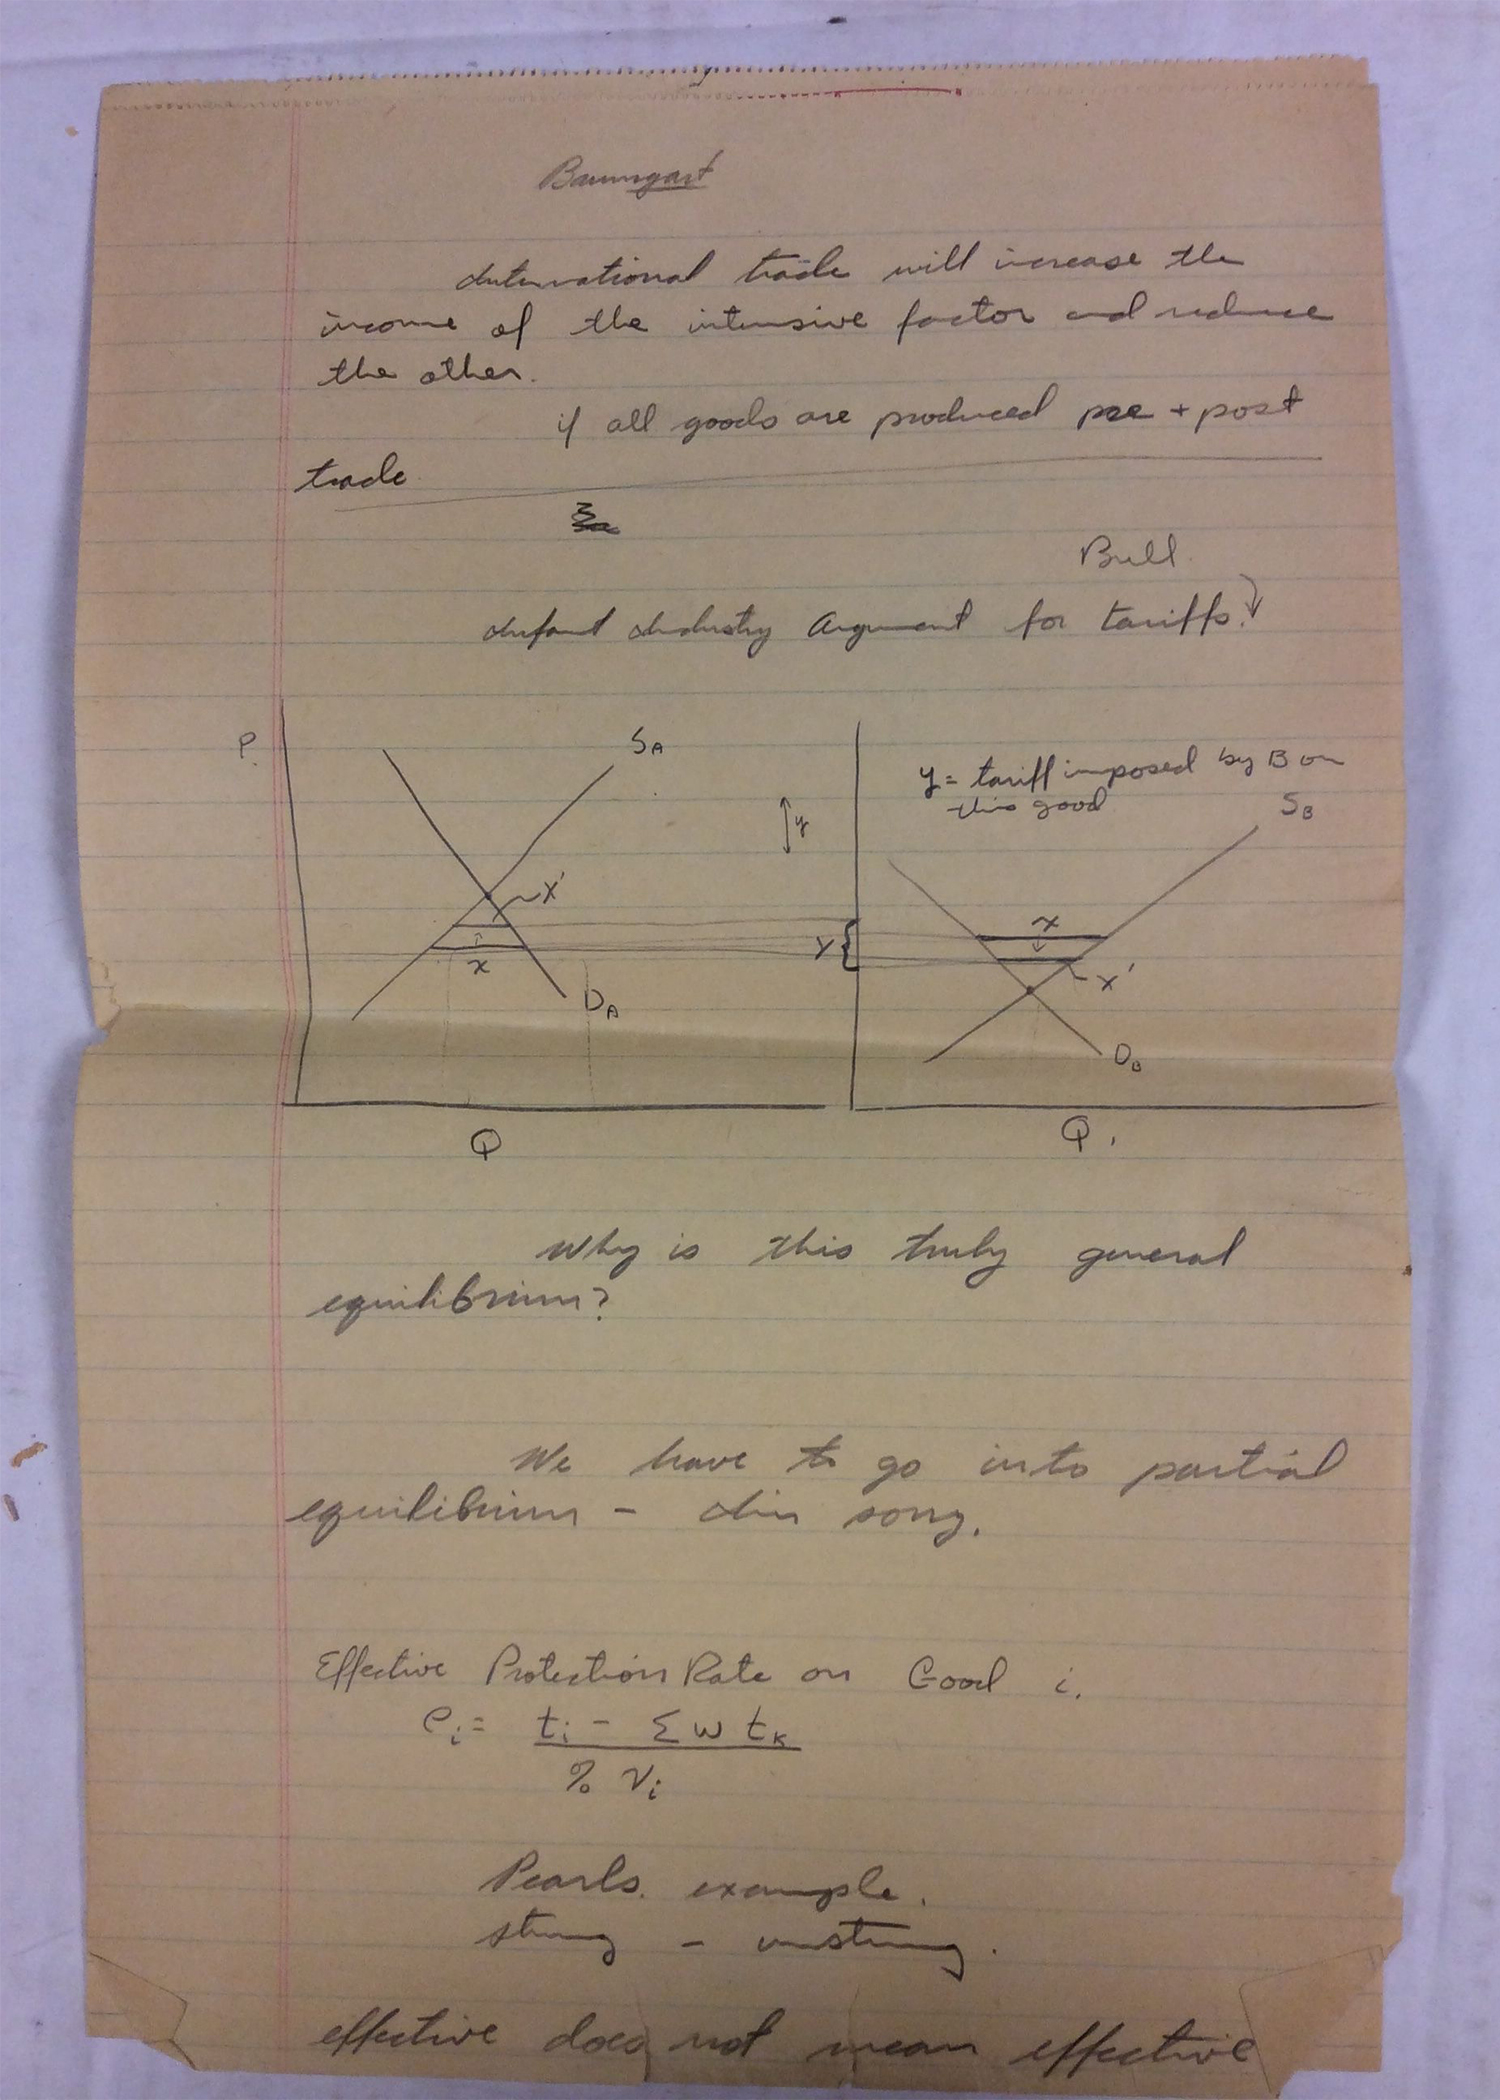 Baumgart
International trade will increase the
income of the intensive factor and reduce
the other.
if all goods are produced pre + post
trade.
Bull
Infant Industry Argument for tariffs.
P.
S_A
y
y = tariff imposed by B on
this good
S_B
X'
x
D_A
Y
x
X'
D_B
Q
Q
Why is this truly general
equilibrium?
We have to go into partial
equilibrium - I'm sorry.
Effective Protection Rate on Good i.
e_i = t_i - Σ w t_k
% v_i
Pearls. example.
strung - unstrung.
effective does not mean effective